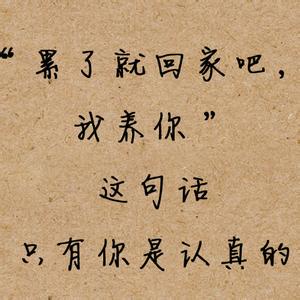 “累了就回家吧，
我养你”
这句话
只有你是认真的